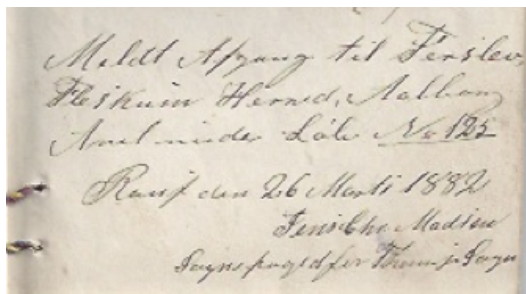 Meldt Afgang til Ferslev,
Fleskum Herred, Aalborg
Amt under Løb No 125
den 26 Marts 1882
Jens Chr. Madsen
Sognefoged for Sogn